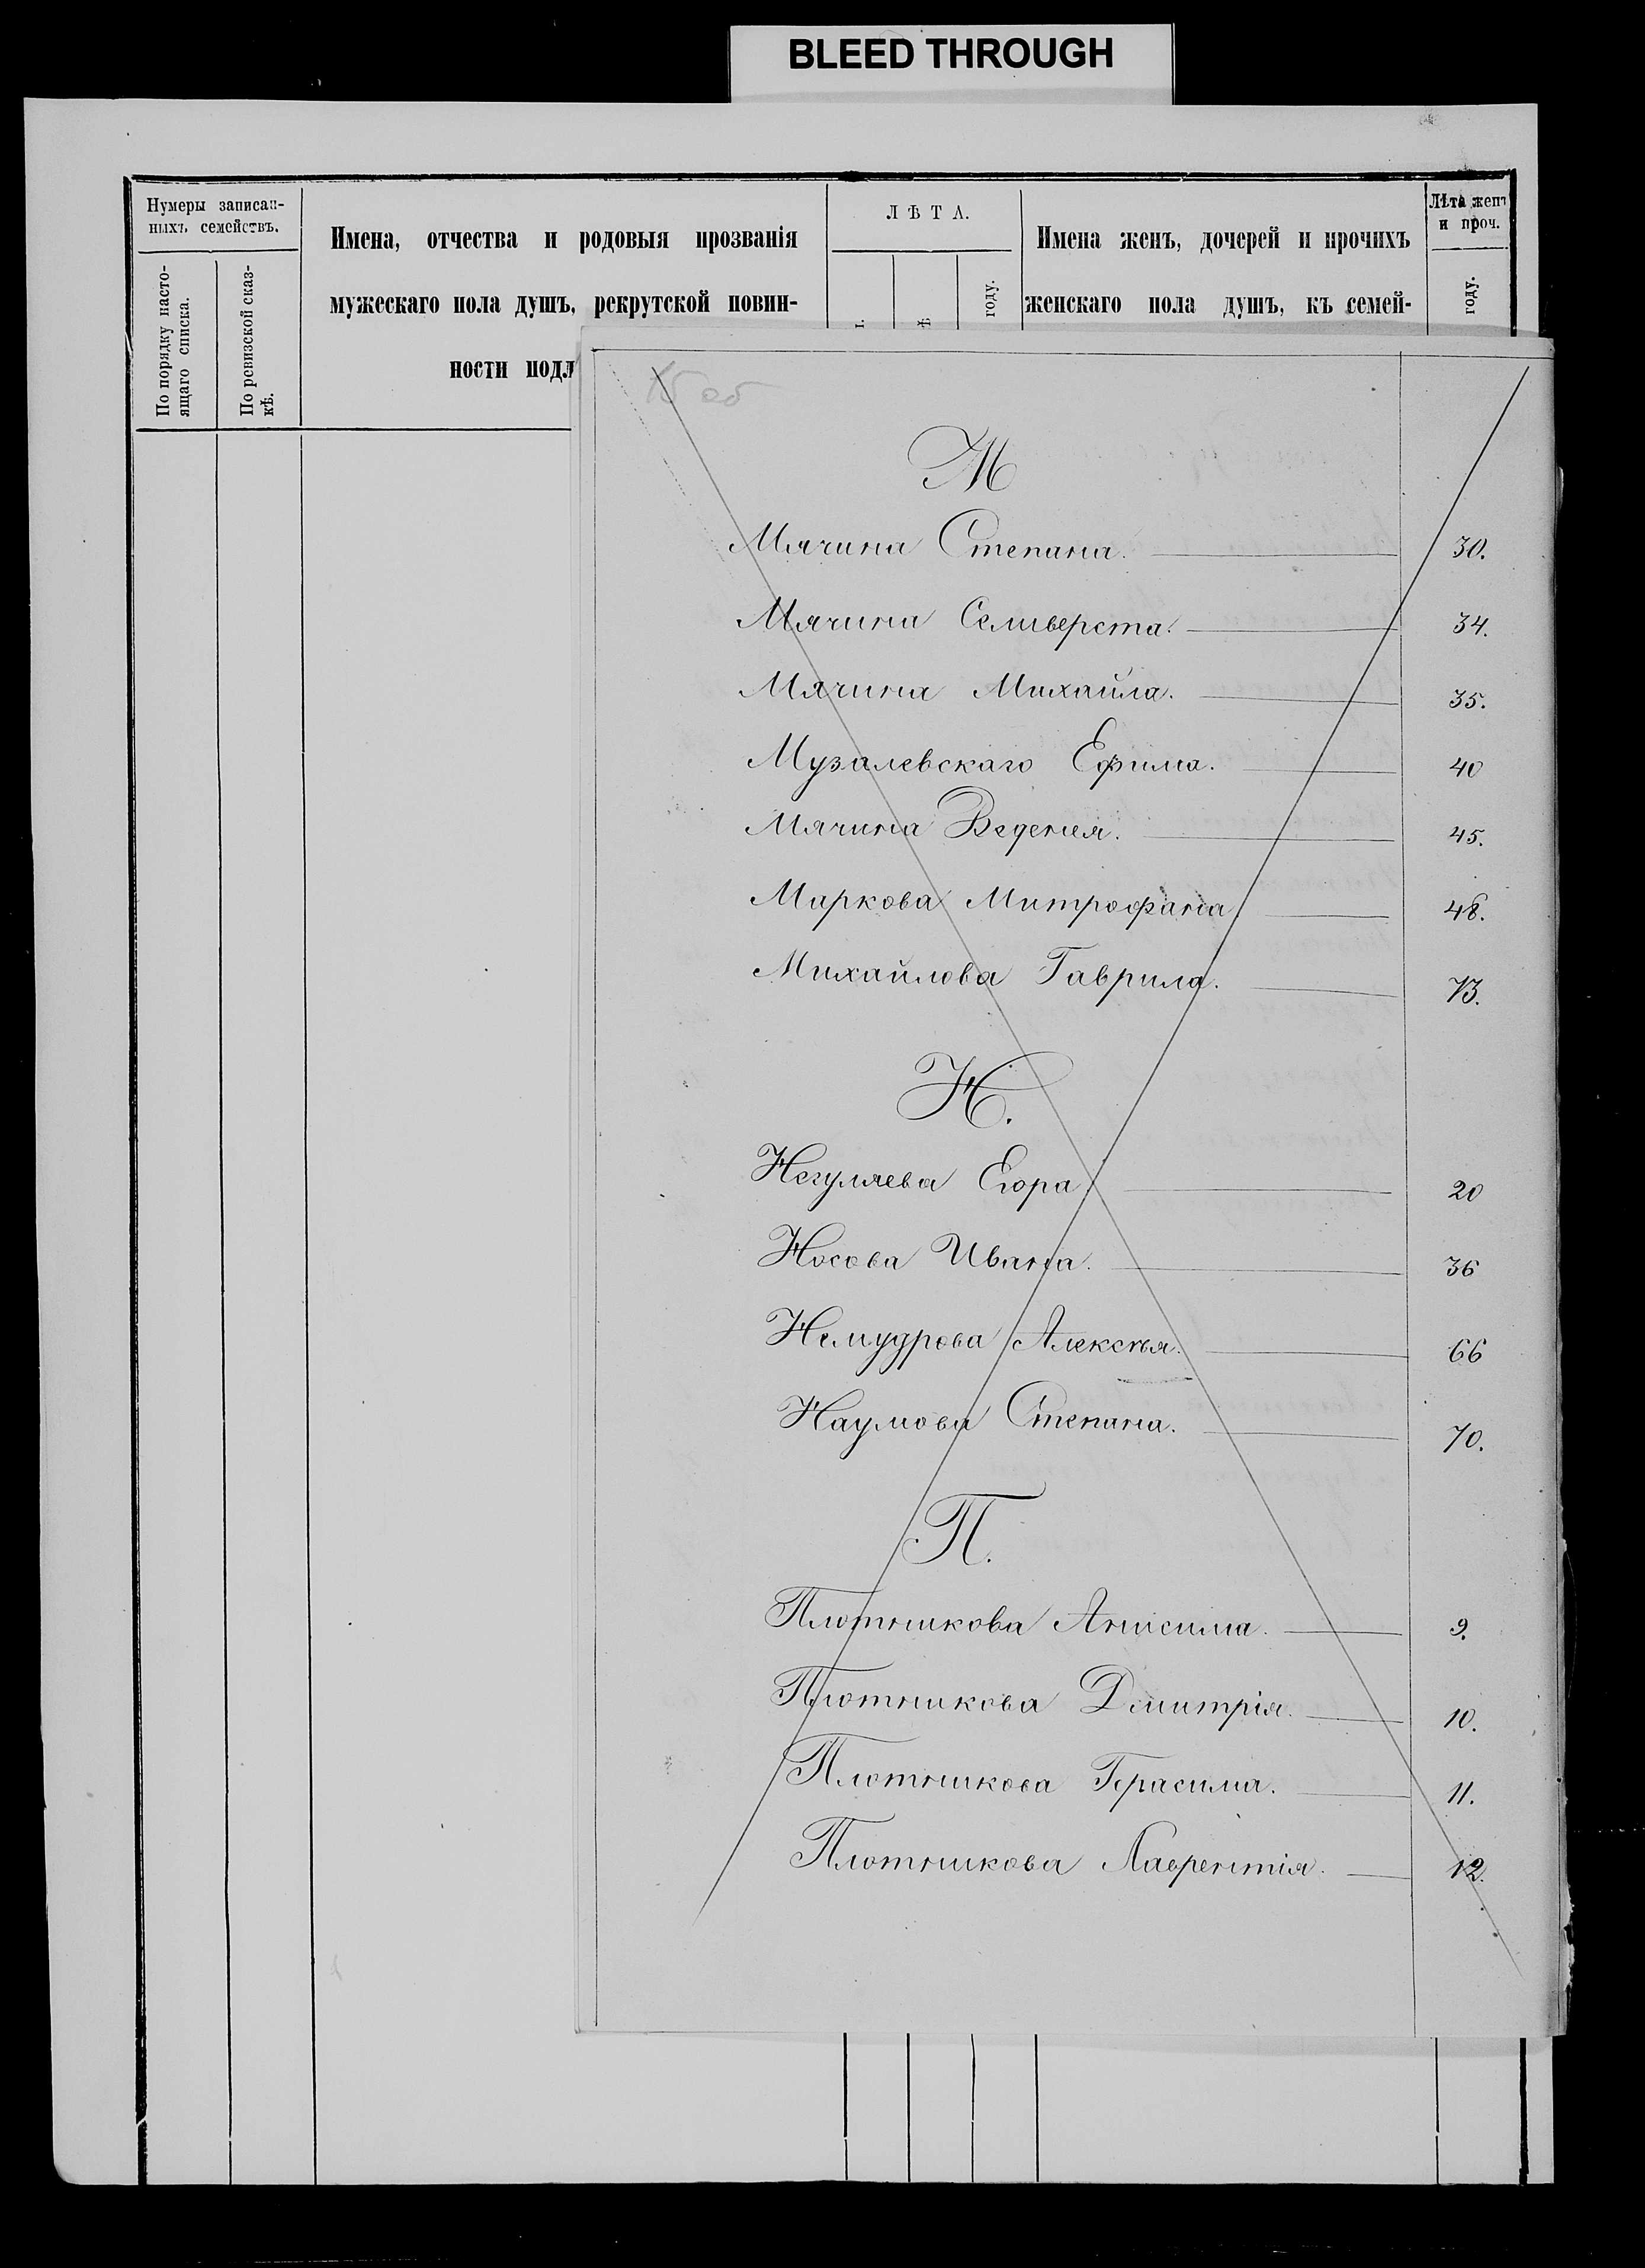 BLEED THROUGH
Нумеры записан-
ныхъ семействъ.
По порядку насто-
ящаго списка.
По ревизской сказ-
кѣ.
Имена, отчества и родовыя прозванія
мужескаго пола душъ, рекрутской повин-
ности подл
ЛѢТА.
году.
Имена женъ, дочерей и прочихъ
женскаго пола душъ, къ семей-
Лѣта женъ
и проч.
году.
15 об
М
Мячина Степана. 30.
Мячина Селиверста. 34.
Мячина Михайла. 35.
Музалевскаго Ефима. 40
Мячина Веденея. 45.
Маркова Митрофана 48.
Михайлова Гаврила. 73.
Н.
Негуляева Егора 20
Носова Ивана. 36
Немудрова Алексѣя. 66
Наумова Степана. 70.
П.
Плотникова Анисима. 9.
Плотникова Дмитрія. 10.
Плотникова Герасима. 11.
Плотникова Лаврентія. 12.